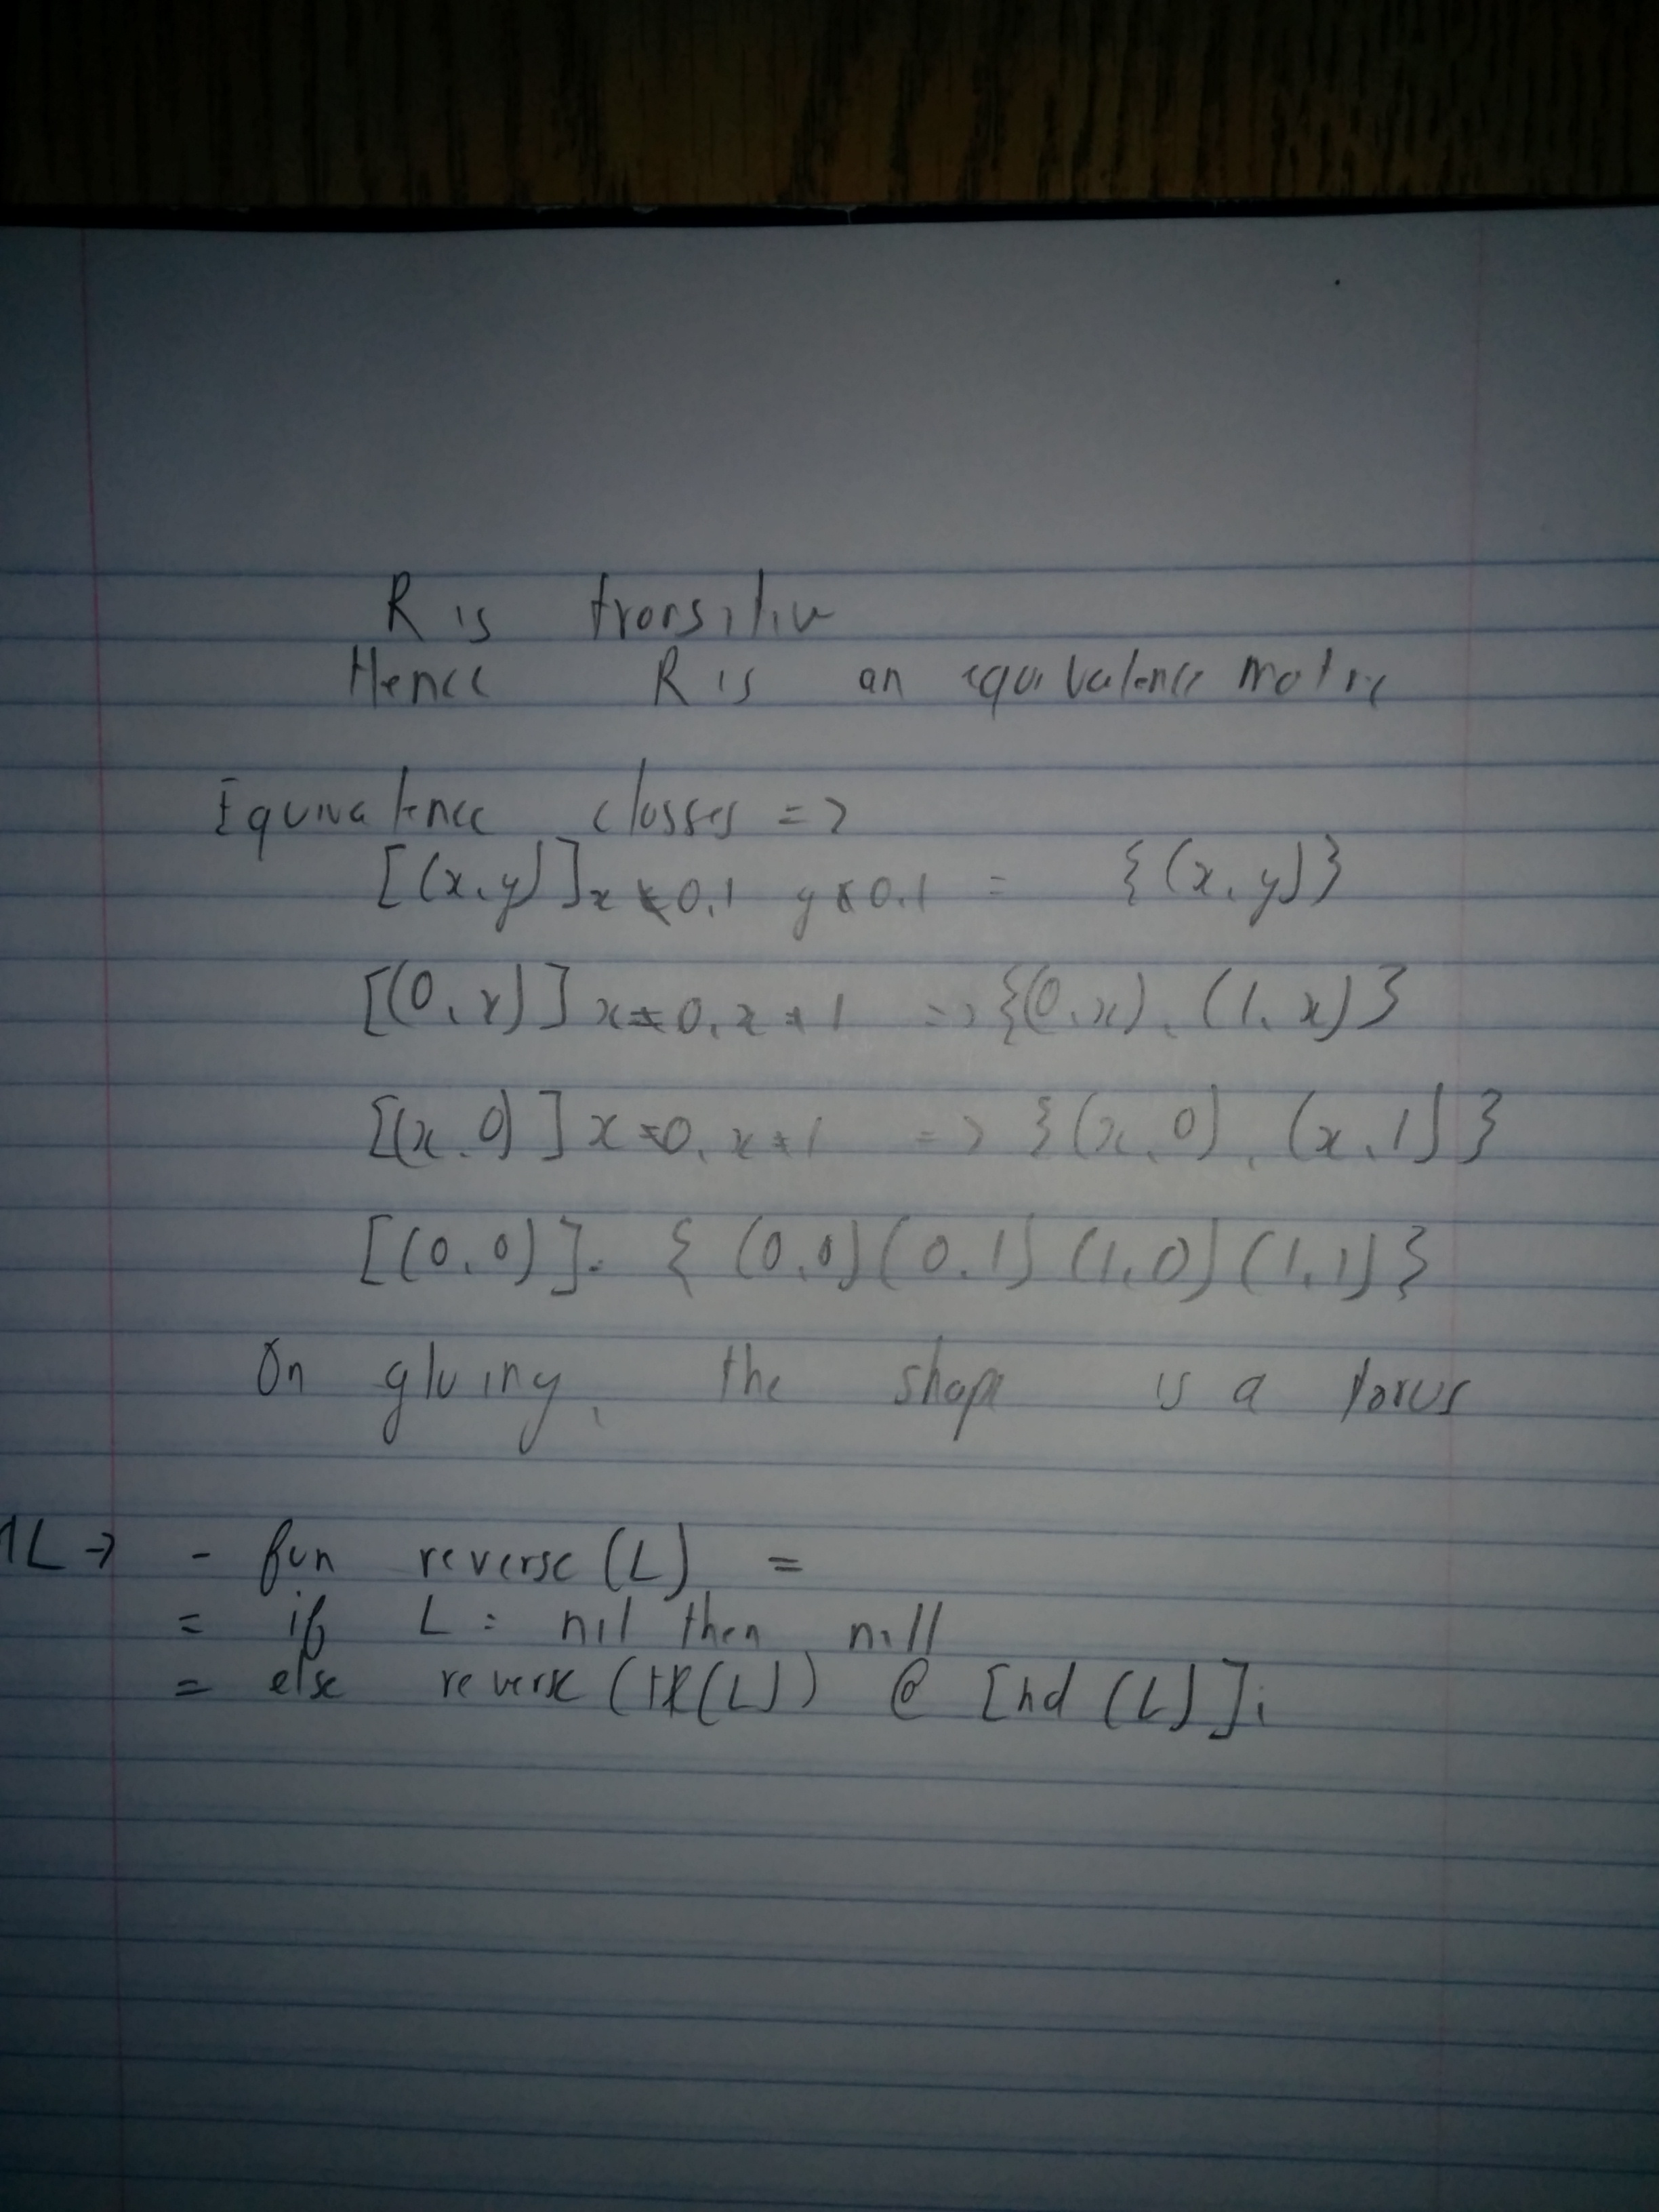 R is transitive
Hence R is an equivalence matrix
Equivalence classes =>
[(x,y)] x≠0,1 y≠0,1 = {(x,y)}
[(0,x)] x≠0, x≠1 => {(0,x), (1,x)}
[(x,0)] x≠0, x≠1 => {(x,0), (x,1)}
[(0,0)]. {(0,0)(0,1)(1,0)(1,1)}
On gluing, the shape is a torus
ML → - fun reverse(L) =
= if L = nil then nill
= else reverse(tl(L)) @ [hd (L)];